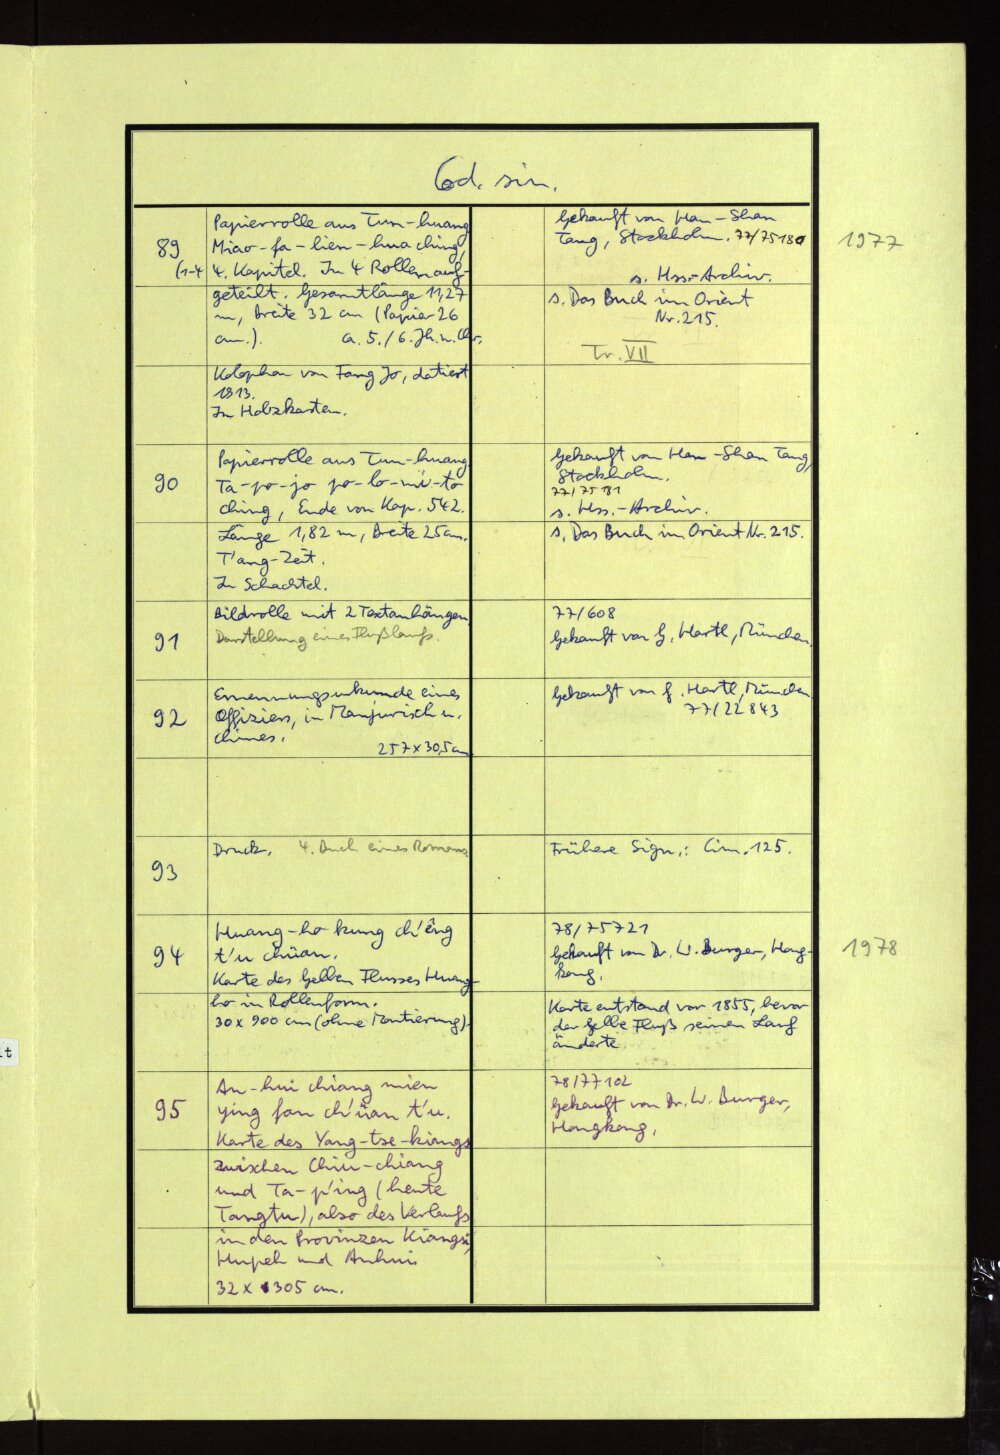 Cod. sin.
89
(1-4
Papierrolle aus Tun-huang
Miao-fa-lien-hua ching,
4. Kapitel. In 4 Rollen auf-
geteilt. Gesamtlänge 11,27
m, Breite 32 cm (Papier 26
cm.). ca. 5./6. Jh. n. Chr.
Kolophon von Fang Jo, datiert
1913.
In Holzkasten.
Gekauft von Han-Shan
Tang, Stockholm. 77/75180
s. Hss.-Archiv.
s. Das Buch im Orient
Nr. 215.
Tr. VII
1977
90
Papierrolle aus Tun-huang
Ta-po-jo po-lo-mi-to
ching, Ende von Kap. 542.
Länge 1,82 m, Breite 25 cm.
T'ang-Zeit.
In Schachtel.
Gekauft von Han-Shan Tang,
Stockholm.
77/75181
s. Hss.-Archiv.
s. Das Buch im Orient Nr. 215.
91
Bildrolle mit 2 Textanhängen
Darstellung eines Flußlaufs.
77/608
Gekauft von G. Hartl, München.
92
Ernennungsurkunde eines
Offiziers, in Manjurisch u.
chines.
257 x 30,5 cm
Gekauft von G. Hartl, München
77/22843
93
Druck. 4. Buch eines Romans
Frühere Sign.: Cim. 125.
94
Huang-ho kung ch'êng
t'u chüan.
Karte des Gelben Flusses Huang-
ho in Rollenform.
30 x 900 cm (ohne Montierung).
78/75721
Gekauft von Dr. W. Burger, Hong-
kong.
Karte entstand vor 1855, bevor
der Gelbe Fluß seinen Lauf
änderte
1978
lt
95
An-hui chiang mien
ying fan ch'üan t'u.
Karte des Yang-tse-kiangs
zwischen Chiu-chiang
und Ta-p'ing (heute
Tangtu), also des Verlaufs
in den Provinzen Kiangsi,
Hupeh und Anhui
32 x 1305 cm.
78/77102
Gekauft von Dr. W. Burger,
Hongkong.